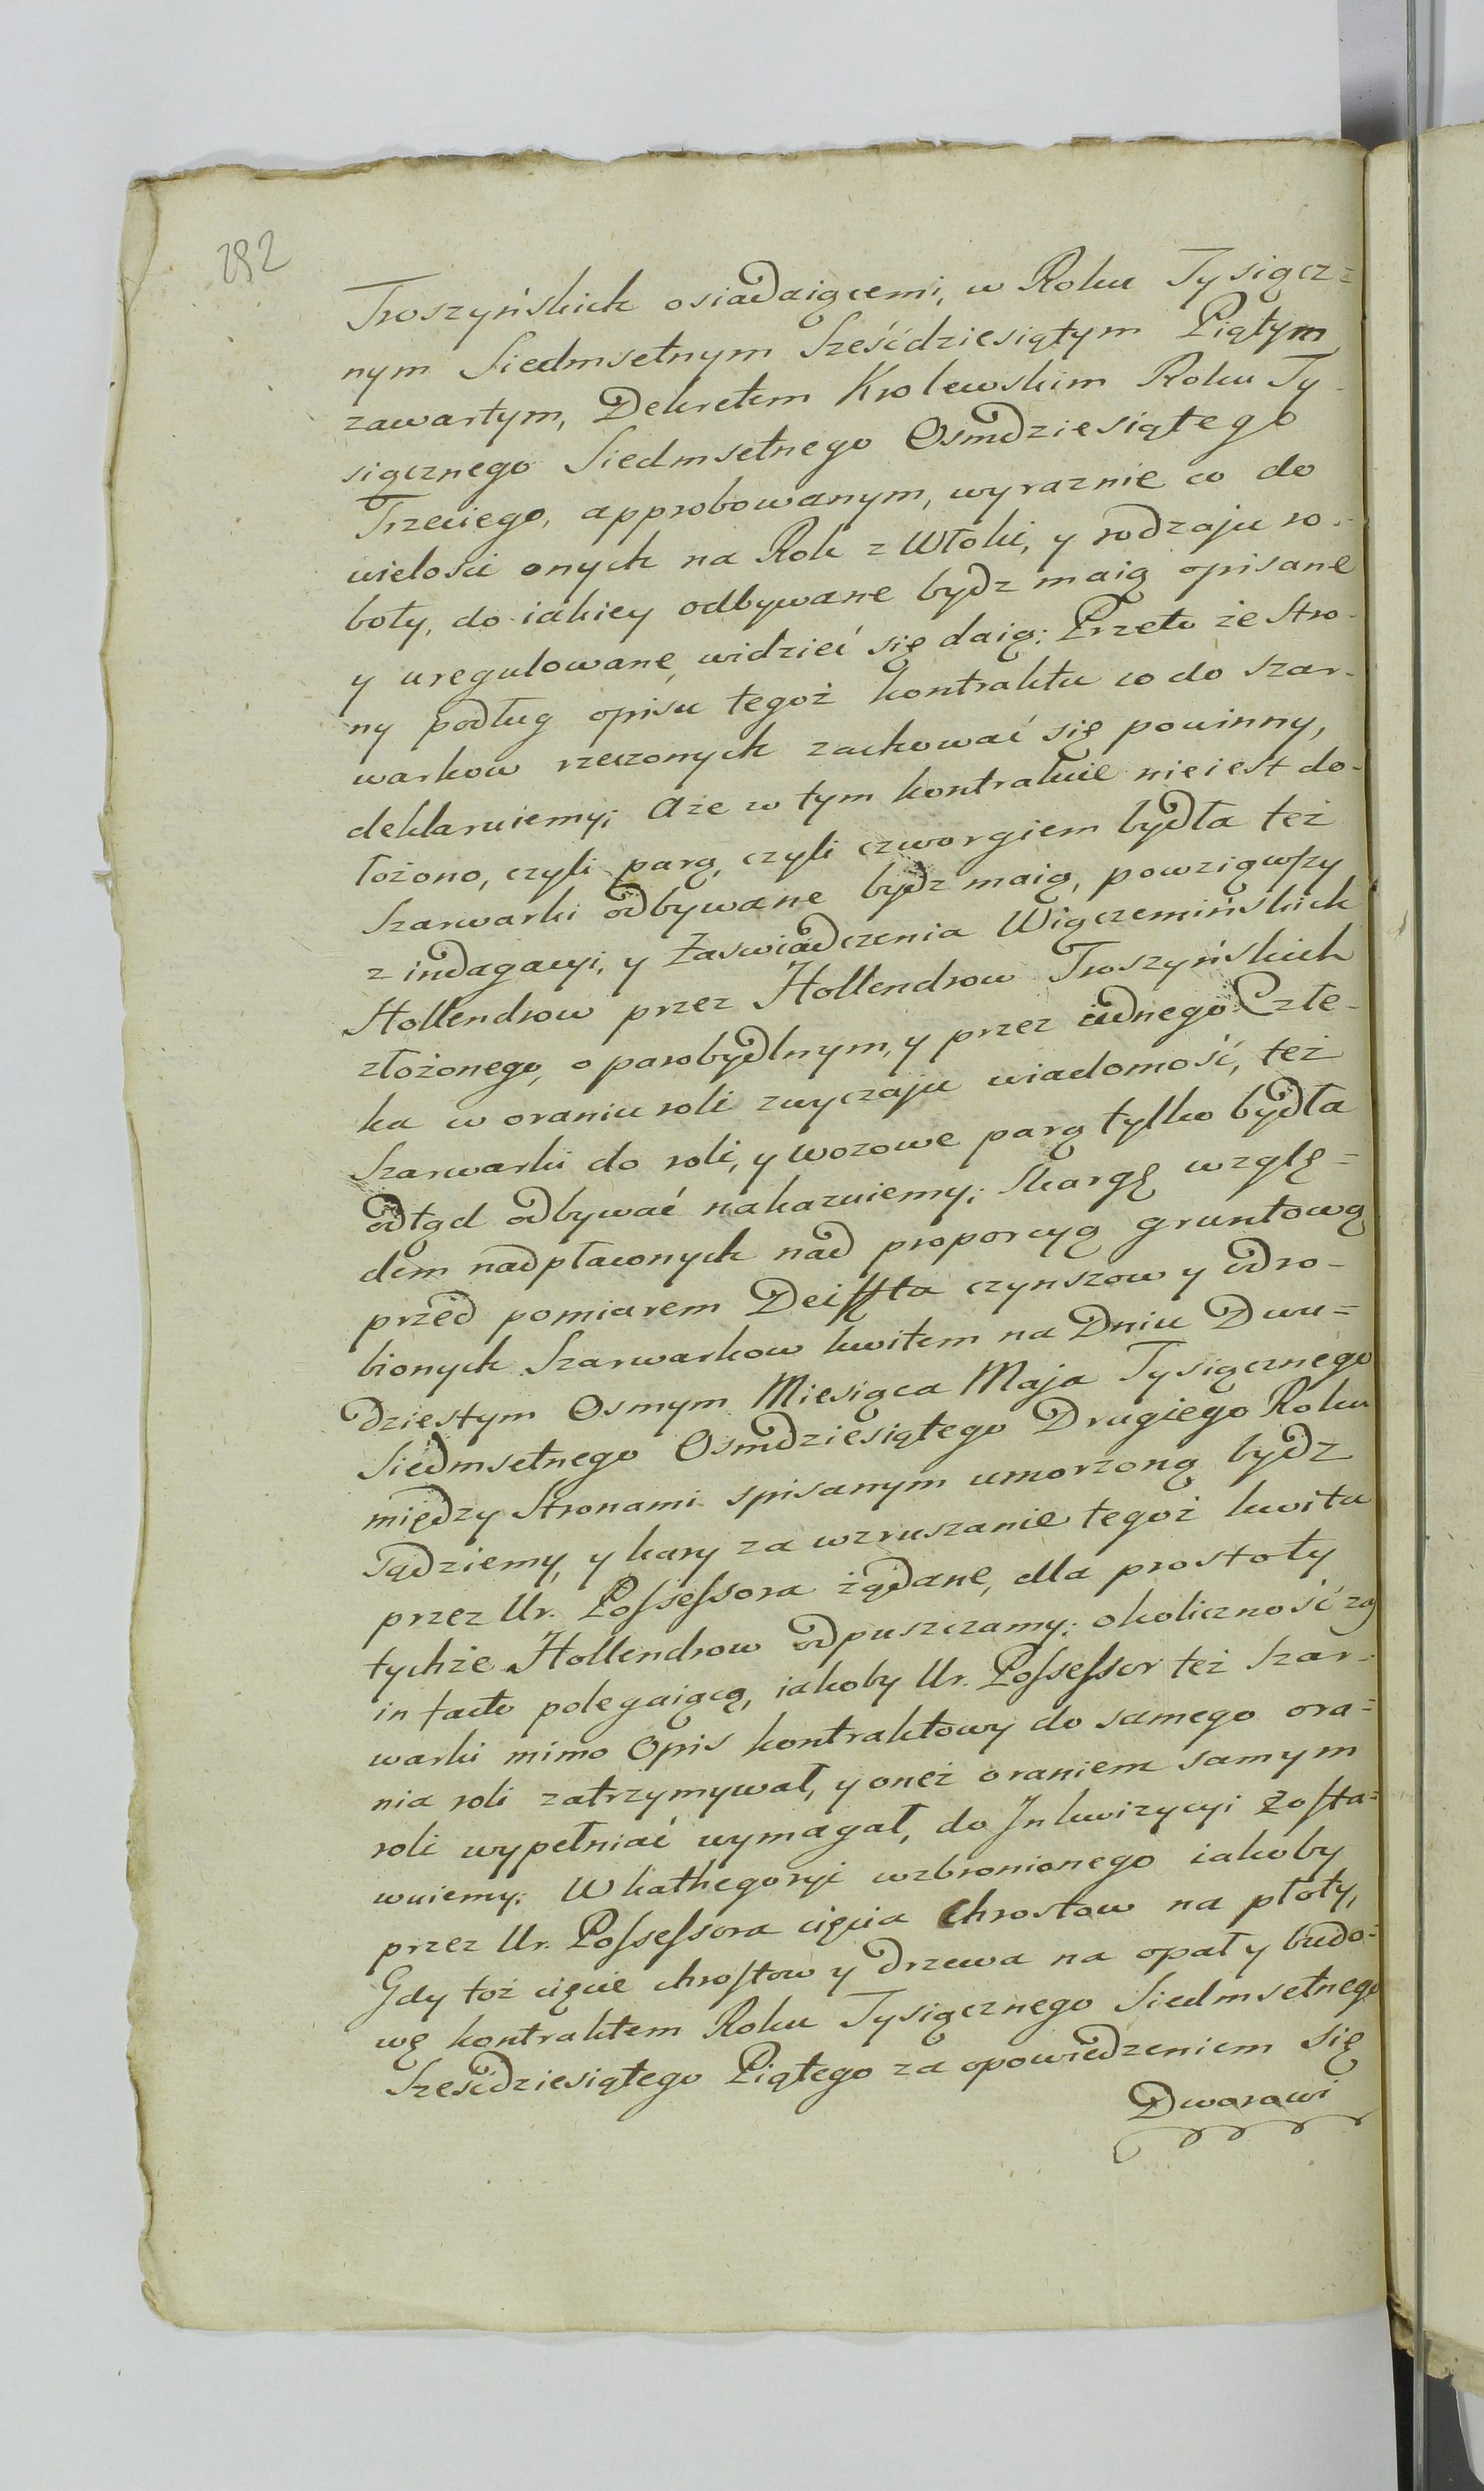 282
Troszyńskich osiadaiącemi, w Roku Tysiącz=
nym Siedmsetnym Sześćdziesiątym Piątym
zawartym, Dekretem Krolewskim Roku Ty-
siącznego Siedmsetnego Osmdziesiątego
Trzeciego, approbowanym, wyraznie co do
wielosci onych na Rok z Włoki, y rodzaju ro-
boty, do iakiey odbywane bydz maią opisane
y uregulowane, widzieć się daią: Przeto że stro-
ny podług opisu tegoż kontraktu co do szar-
warkow rzeczonych zachować się powinny,
deklaruiemy; Aże w tym kontrakcie nieiest do-
łożono, czyli parą, czyli czworgiem bydła też
Szarwarki odbywane bydz maią, powziąwszy
z indagacyi, y Zaswiadczenia Wiączemińskich
Hollendrow przez Hollendrow Troszyńskich
złożonego, o parobydlnym, y przez iednego Człe-
ka w oraniu roli zwyczaju wiadomość, też
Szarwarki do roli, y wozowe parą tylko bydła
odtąd odbywać nakazuiemy; Skargę wzglę=
dem nadpłaconych nad proporcyą gruntową
przed pomiarem Deiffta czynszow y odro-
bionych Szarwarkow kwitem na Dniu Dwu=
dziestym Osmym Miesiąca Maja Tysiącznego
Siedmsetnego Osmdziesiątego Drugiego Roku
między Stronami spisanym umorzoną bydz
sądziemy, y kary za wzruszanie tegoż kwitu
przez Ur. Possessora żądane, dla prostoty
tychże Hollendrow odpuszczamy: okoliczność zaś
in facto polegaiącą, iakoby Ur. Possessor też Szar-
warki mimo Opis kontraktowy do samego ora=
nia roli zatrzymywał, y oneż oraniem samym
roli wypełniać wymagał, do Inkwizycyi Zosta=
wuiemy: W kathegoryi wzbronionego iakoby
przez Ur. Possessora cięcia Chrostow na płoty,
Gdy toż cięcie chrostow y drzewa na opał y budo=
wę kontraktem Roku Tysiącznego Siedmsetnego
Sześćdziesiątego Piątego za opowiedzeniem się
Dworowi